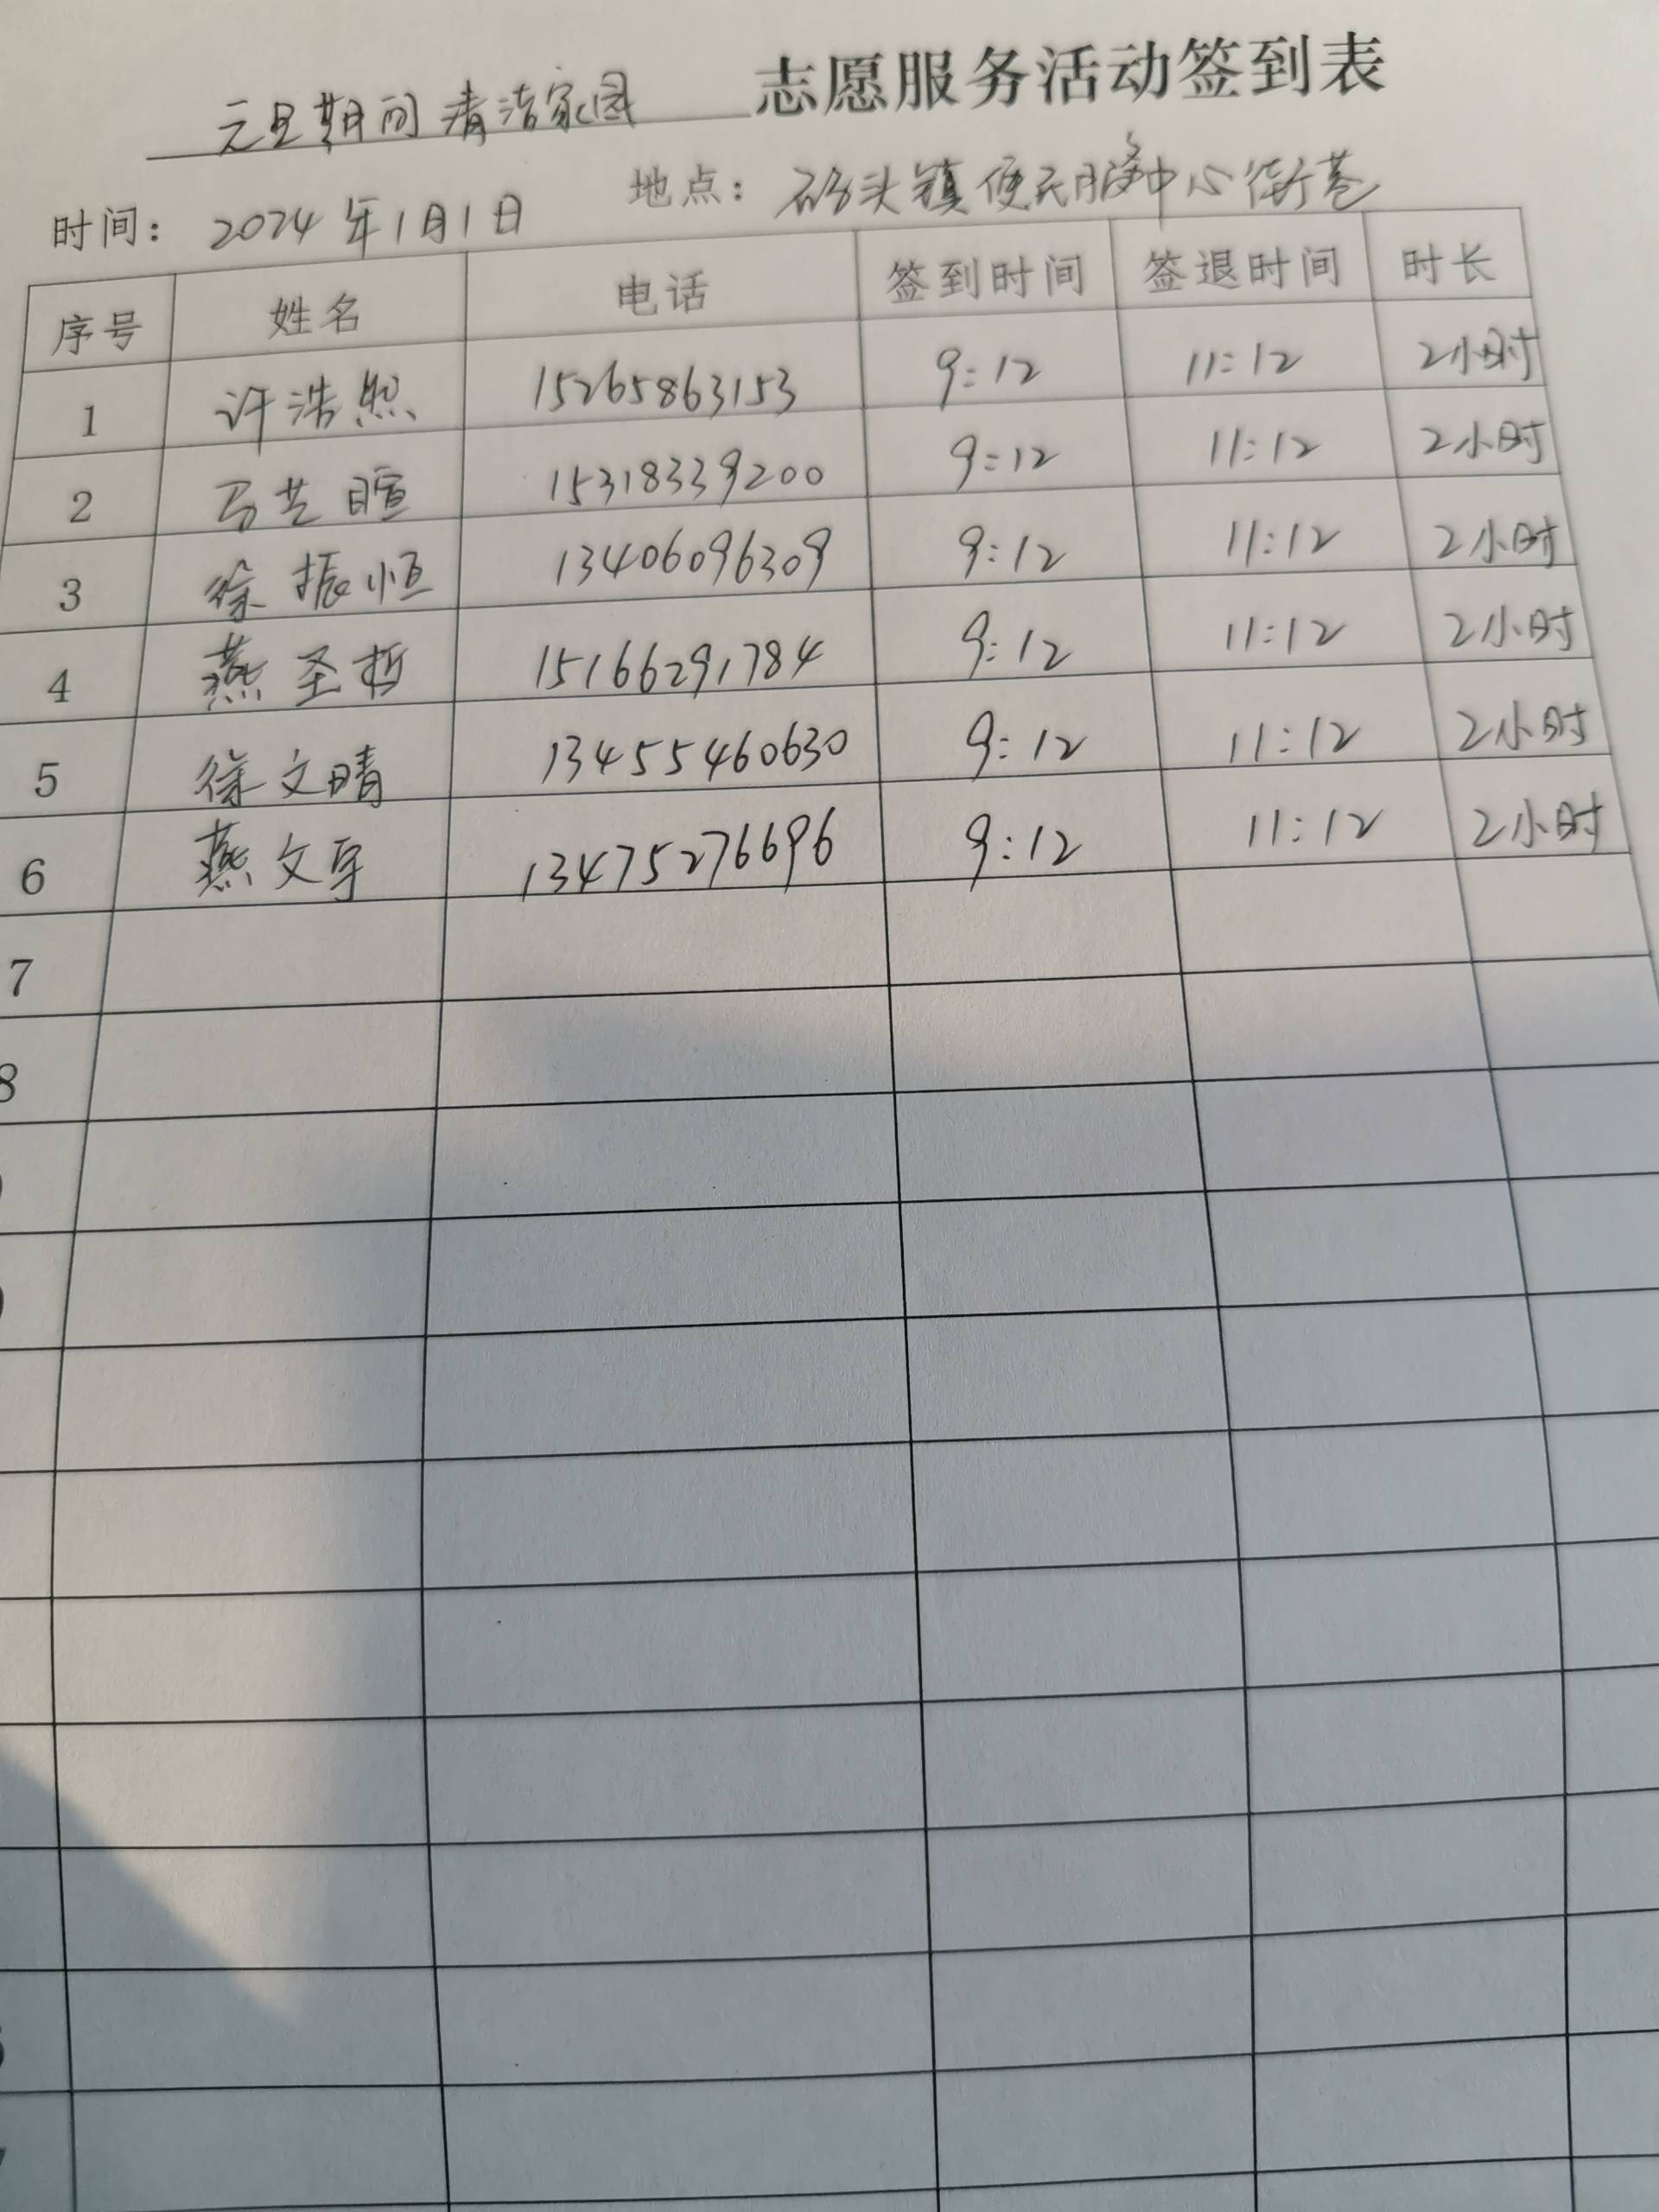 元旦期间清洁家园 志愿服务活动签到表
时间: 2024年1月1日 地点: 码头镇便民服务中心街巷
序号 姓名 电话 签到时间 签退时间 时长
1 许浩然 15265863153 9:12 11:12 2小时
2 马艺暄 15318339200 9:12 11:12 2小时
3 徐振恒 13406096309 9:12 11:12 2小时
4 燕圣哲 15166291784 9:12 11:12 2小时
5 徐文晴 13455460630 9:12 11:12 2小时
6 燕文宇 13475276696 9:12 11:12 2小时
7
8